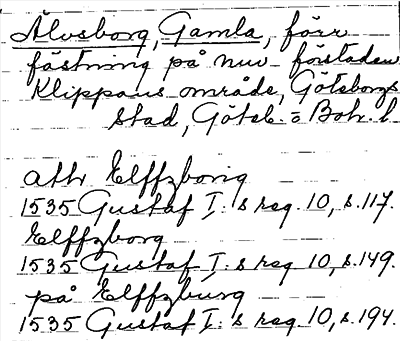 Älvsborg, Gamla, förr
fästning på nuv. förstaden
Klippans område, Göteborgs
stad, Göteb. o Boh. l.
att Elffzborg
1535 Gustaf I:s reg. 10, s. 117.
Elffzborg
1535 Gustaf I:s reg. 10, s. 149.
på Elffzburg
1535 Gustaf I:s reg. 10, s. 194.